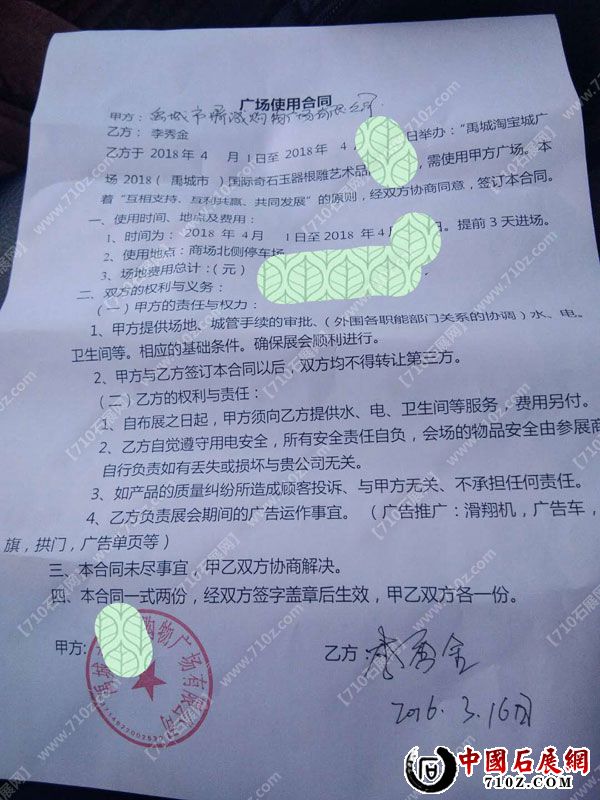 广场使用合同
甲方：禹城市 购物广场有限公司
乙方：李秀金
乙方于 2018 年 4 月 1 日至 2018 年 4 日举办：“禹城淘宝城广
场 2018（禹城市）国际奇石玉器根雕艺术品 ，需使用甲方广场。本
着“互相支持、互利共赢、共同发展”的原则，经双方协商同意，签订本合同。
一、使用时间、地点及费用：
1、时间为：2018 年 4月 1日至 2018 年 4月 日。提前 3 天进场。
2、使用地点：商场北侧停车场
3、场地费用总计：（元）
二、双方的权利与义务：
（一）甲方的责任与权力：
1、甲方提供场地、城管手续的审批、（外围各职能部门关系的协调）水、电。
卫生间等。相应的基础条件。确保展会顺利进行。
2、甲方与乙方签订本合同以后，双方均不得转让第三方。
（二）乙方的权利与责任：
1、自布展之日起，甲方须向乙方提供水、电、卫生间等服务，费用另付。
2、乙方自觉遵守用电安全，所有安全责任自负，会场的物品安全由参展商
自行负责如有丢失或损坏与贵公司无关。
3、如产品的质量纠纷所造成顾客投诉、与甲方无关、不承担任何责任。
4、乙方负责展会期间的广告运作事宜。（广告推广：滑翔机，广告车，
旗，拱门，广告单页等）
三、本合同未尽事宜，甲乙双方协商解决。
四、本合同一式两份，经双方签字盖章后生效，甲乙双方各一份。
甲方：
乙方：李秀金
2016.3.16日
购物广场有限公司
中國石展網
710Z.COM
【710石展网】www.710z.com